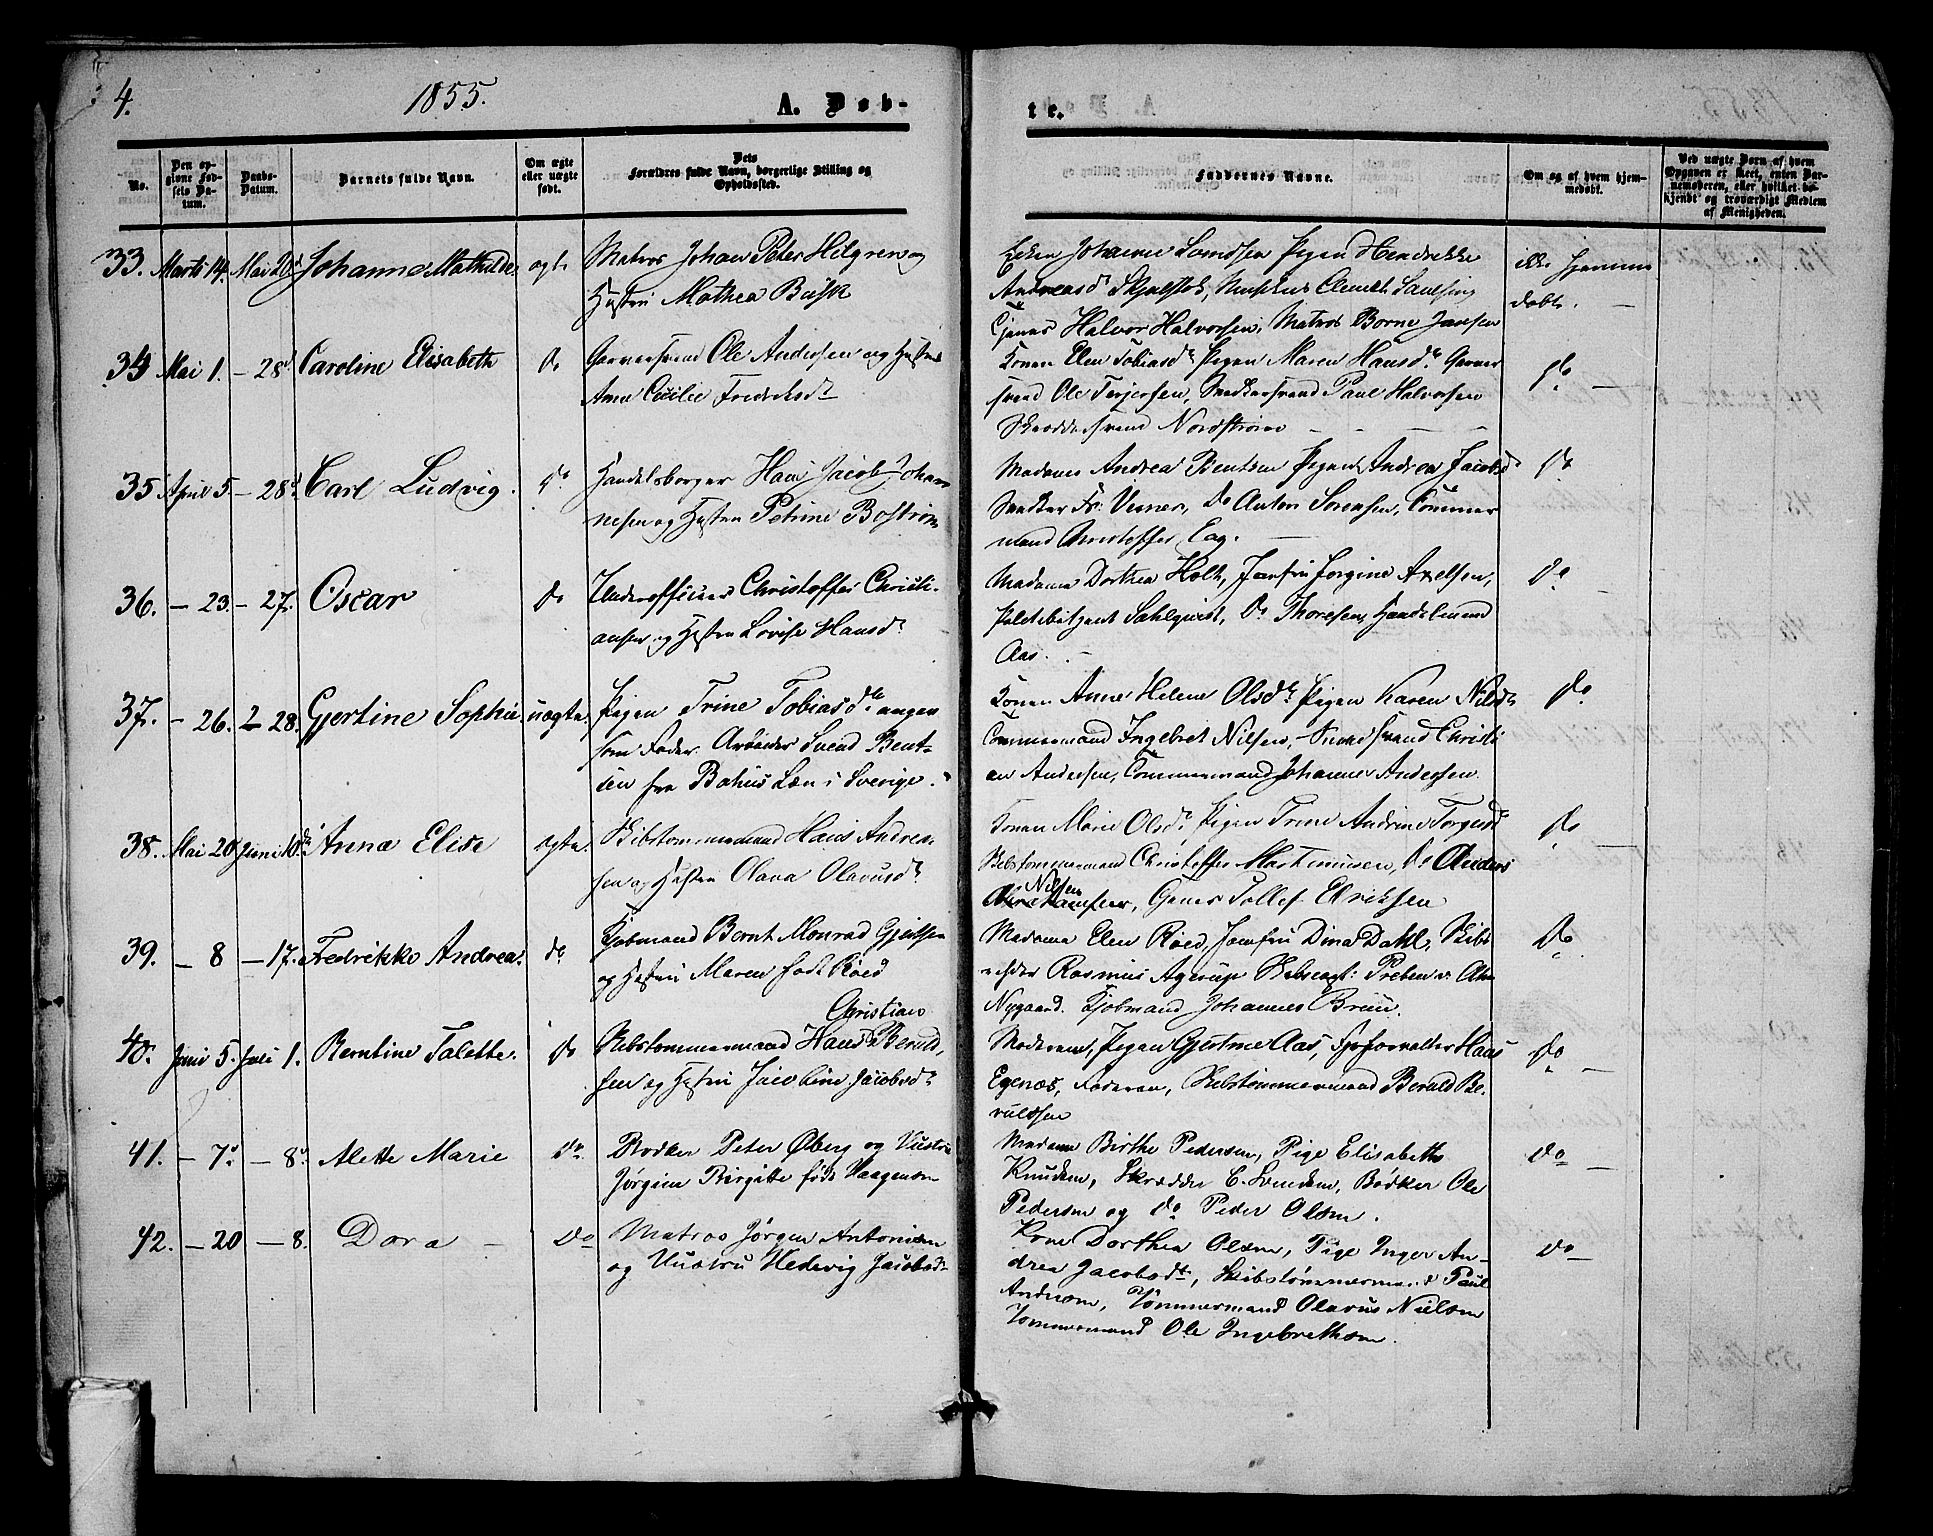 4. 1855. A. Døb-
te.
No.
Den op-
givne Fød-
sels Da-
tum.
Daabs-
Datum.
Barnets fulde Navn.
Om ægte
eller uægte
født.
Dets
Forældres fulde Navn, borgerlige Stilling og
Opholdssted.
Faddernes Navne.
Om og af hvem hjem-
medøbt.
Ved uægte Børn af hvem
Opgaven er skeet, enten Bar-
nemoderen, eller hvilket be-
kjendt og troværdigt Medlem
af Menigheden.
33. Marts 14. Mai 28 Johanne Mathilde ægte Matros Johan Peter Hilgren og
Hustru Mathea Busk
Johanne Pigen Hendrikke
Andreasd
Halvor Halvorsen, Matros Jansen
ikke hjemme
døbt.
34 Mai 1. – 28d Caroline Elisabeth do Garversvend Ole Andersen og Hustru
Anne Cecilie Frederiksdt
Konen Elen Tobiasdt Pigen Maren Hansdt Garver
svend Ole Terjersen, Snedkersvend Paul Halvorsen
Skræddersvend Nordstrøm
do
35 April 5. – 28d. Carl Ludvig. do Handelsborger Hans Jacob Johan
nesen og Hustru Petrine Bostrøm
Madame Andrea Bentsen Pigen Andrea Jacobsd
Snedker Fr: Do Anton Sorensen, Tømmer
mand Christoffer
do
36. – 23. – 27. Oscar do Underofficeer Christoffer Christi-
ansen og Hustru Lovise Hansdt
Madame Dorthea Holt, Jomfru Jorgine Axelsen,
Sahlqvist, Do Thoresen, Handelsmand
Aas.
do
37. – 26. – 28. Gjertine Sophie uægte. Pigen Trine Tobiasdtr angiv
som Fader Arbeider Svend Bent-
sen fra Bahus Len i Sverige.
Konen Anne Helene Olsdt Pigen Karen Nilsdt
Tømmermand Ingebret Nilsen, svend Christi
an Andersen, Tømmermand Johannes Andersen.
do
38. Mai 20 Juni 10d Anna Elise ægte Skibstømmermand Hans Andrea-
sen og Hustru Olava Olavusdt
Konen Marie Olsdt Pigen Trine Andrine Torgersd
Skibstømmermand Christoffer Martinusen, Do Anders
Nilsen
Tollef Eriksen
do
39. – 8 – 17. Fredrikke Andrea. do Kjøbmand Bernt Monrad Gjertsen
og Hustru Maren født Røed
Madame Elen Røed, Jomfru Dina Dahl, Skibs
reder Rasmus Agerup Skibscapt: Preben
Nygaard. Kjøbmand Johannes Bruun.
do
40. Juni 5. Juli 1. Berntine Talette. do Skibstømmermand Hans Christian Beruld,
sen og Hustru Jacobine Jacobsdt
Moderen, Pigen Gjertine Aas, Hans
Egenæs, Faderen, Skibstømmermand Beruld Be-
ruldsen
do
41. – 7d. – 8d. Alette Marie do. Bødker Peter Øberg og Hustru
Jørgine Birgitte født Haagensen
Madame Birthe Pedersen, Pige Elisabeth
Knudsen, Skrædder C. Svendsen, Bødker Ole
Pedersen og do Peder Olsen.
do
42. – 20 – 8. Dora – do Matros Jørgen Antonisen
og Hustru Hedevig Jacobsdt
Kone Dorthea Olsen, Pige Inger An-
drea Jacobsdt, Skibstømmermand Paul
Andersen, Tømmermand Olavus Nielsen
Tømmermand Ole Ingebrethsen.
do